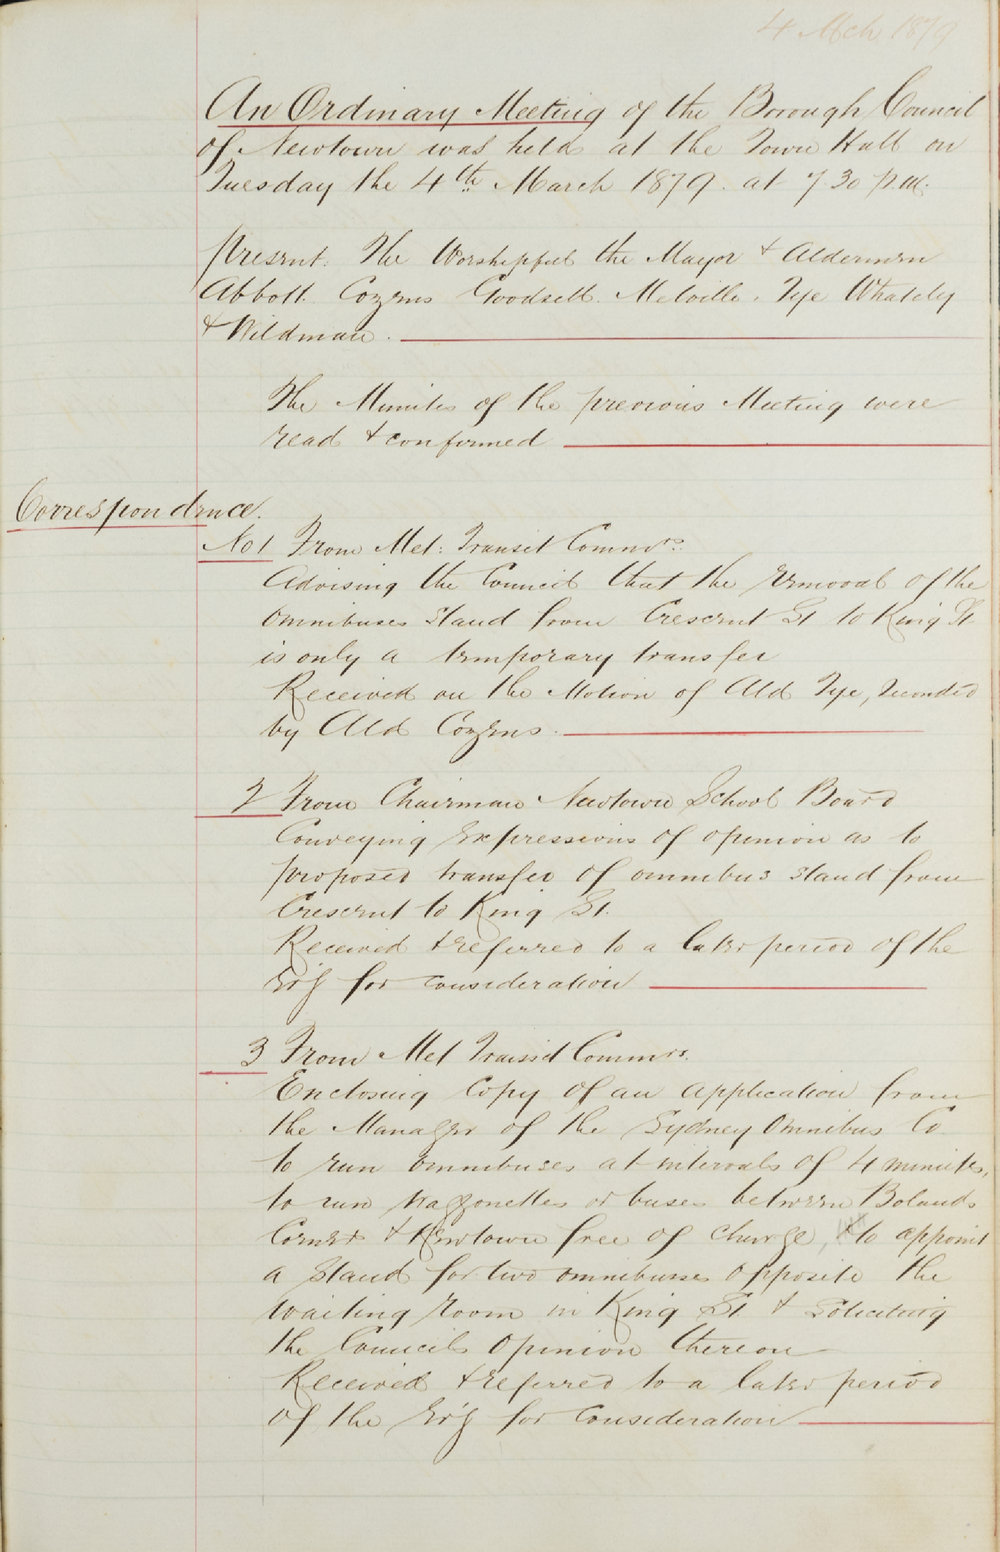 4 Mch 1879
An Ordinary Meeting of the Borough Council
of Newtown was held at the Town Hall on
Tuesday the 4th March 1879. at 7 30 p.m.
Present. The Worshipful the Mayor & Aldermen
Abbott. Cozens Goodsell. Melville. Tye Whately
& Wildman.
The Minutes of the previous Meeting were
read & confirmed
Correspondence.
No 1 From Met: Transit Commrs.
Advising the Council that the removal of the
omnibuses stand from Crescent St to King St
is only a temporary transfer
Received on the Motion of Ald Tye, seconded
by Ald Cozens.
2 From Chairman Newtown School Board
Conveying expressions of opinion as to
proposed transfer of omnibus stand from
Crescent to King St.
Received & referred to a later period of the
ev'g for consideration
3 From Met Transit Commrs.
Enclosing copy of an application from
the Manager of the Sydney Omnibus Co
to run omnibuses at intervals of 4 minutes,
to run waggonettes or buses between Bolands
Corner & Newtown free of charge, to appoint
a stand for two omnibuses opposite the
waiting room in King St & Soliciting
the Councils opinion thereon
Received & referred to a later period
of the ev'g for consideration